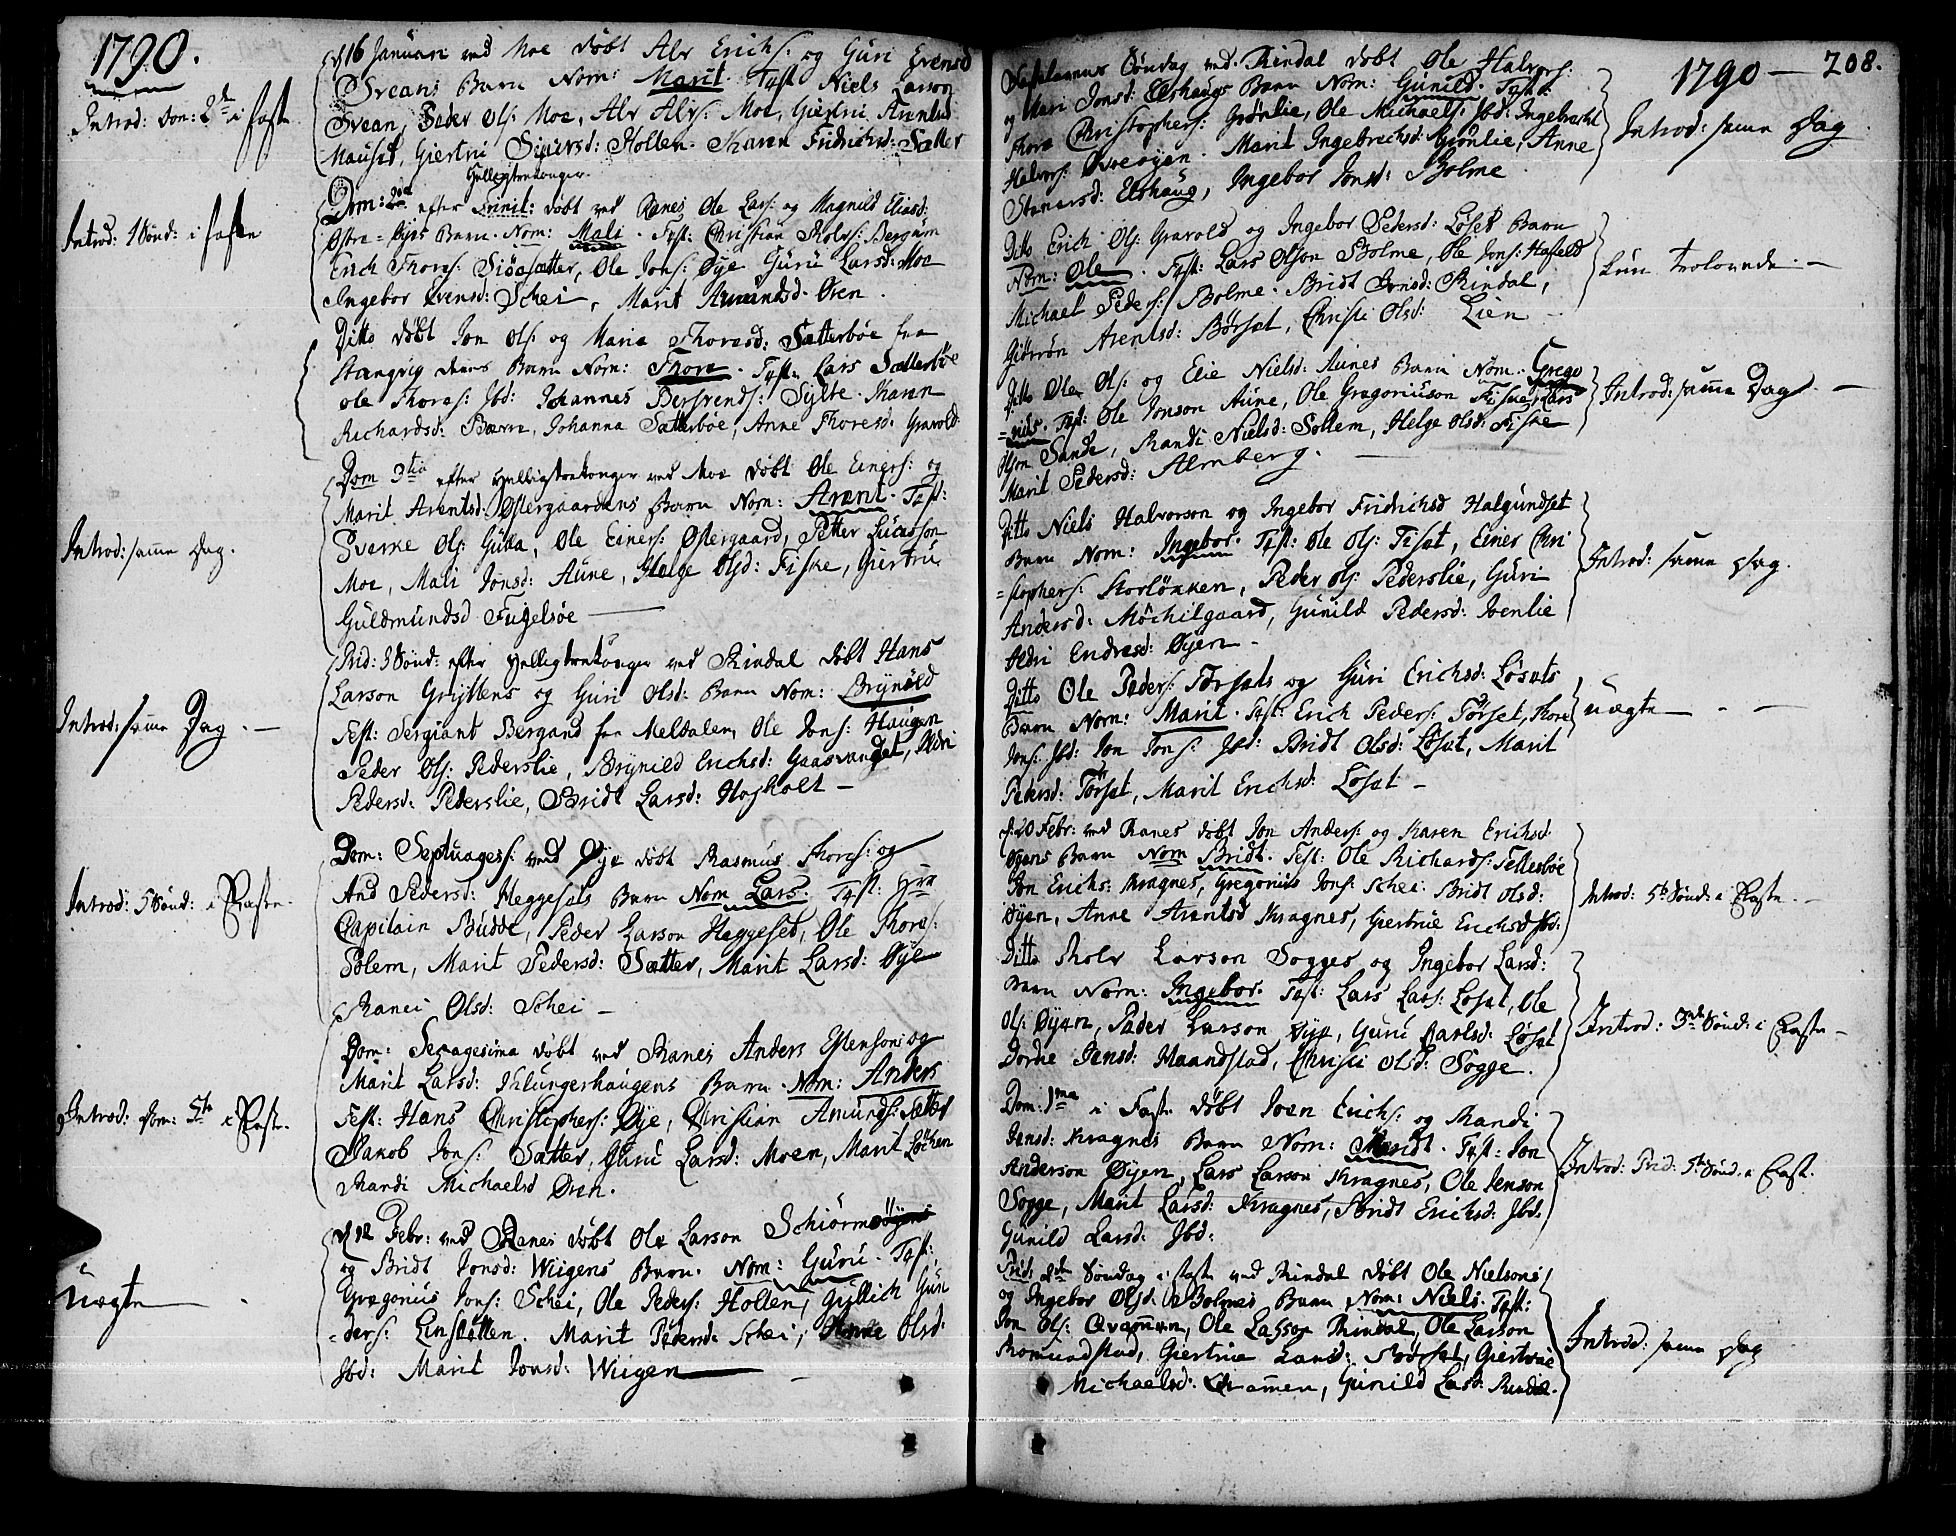 1790.
Introd: Dom: 2de i faste
d 16 Januari ved Moe døbt Alv Erichs: og Guri Evensd
Sveans Barn Nom: Marit. Test: Niels Larson
Svean, Peder Ols: Moe, Alv Alvs: Moe, Giertru Arntsd
Mauset, Giertru Siversd: Hollen. Karen Fridrichsd: Sætter
Introd: 1 Sønd: i faste
Helligtrekonger.
Dom: 2da efter Trinit: døbt ved Ranes Ole Lars: og Magnild Eliasd:
Østre-Øyes Barn. Nom: Mali. Test: Christian Rolvs: Bergum
Erich Thores: Siøasætter, Ole Jons: Øye Guru Larsd: Moe
Ingebor Evensd: Schei, Marit Amundsd. Øren.
Ditto døbt Jon Ols: og Maria Thoresd: Sætterbøe fra
Stangvig deres Barn Nom: Thore. Test: Lars Sætterbøe
Ole Thores: Ibd: Johannes Bersvends: Sylte. Karen
Richardsd: Bævre, Johanna Sætterbøe, Anne Thoresd. Gravold
Introd: samme Dag.
Dom 3tia efter Helligtrekonger ved Moe døbt Ole Einers: og
Marit Arentsd: Østergaardens Barn Nom: Arent. Test:
Sverke Ols: Gulla, Ole Einers: Østergaard, Petter Lucasson
Moe, Mali Jonsd: Aune, Helge Olsd: Fiske, Giertru
Guldmundsd Fugelsøe
Introd: samme Dag. —
Prid: 3 Sønd: efter Helligtrekonger ved Rindal døbt Hans
Larson Gryttens og Guri Olsd: Barn Nom: Brynild
Test: Sergiant Bergand fra Meldalen, Ole Jons: Haugen
Peder Ols: Pederslie, Brynild Erichsd: Gaasvandet, Aldri
Pedersd: Pederslie, Bridt Larsd: Hogholt —
Introd: 5 Sønd: i Faste.
Dom: Septuages: ved Øye døbt Rasmus Thores: og
And Pedersd: Heggesets Barn Nom Lars. Test: Hra
Capitain Budde, Peder Larson Heggeset, Ole Thores:
Solem, Marit Pedersd: Sætter, Marit Larsd: Øye
Ranei Olsd: Schei —
Introd: Dom: 5ta i Faste.
Dom: Sexagesima døbt ved Ranes Anders Estensons og
Marit Larsd: Klungerhaugens Barn. Nom: Anders
Test: Hans Christophers: Øye, Christian Amunds: Sætter
Jakob Jons: Sætter, Guru Larsd: Moen, Marit Løchen
Randi Michaelsd Øren.
Uægte
d 12 Febr: ved Ranes døbt Ole Larson Schiørmoøyens
og Bridt Jonsd: Wiigens Barn. Nom: Guru. Test:
Gregorius Jons: Schei, Ole Peders: Hollen, Gullich Gun
=ders: Linstøtten. Marit Petersd: Schei, Anne Olsd:
Ibd: Marit Jonsd: Wiigen
1790 — 208.
Fastelavns Søndag ved Rindal døbt Ole Halvors:
og Mari Jonsd: Elshaugs Barn Nom: Gunild. Test:
Thore Christophers: Grønlie, Ole Michaels: Ibd: Ingebrecht
Halvors: Øvreøyen. Marit Ingebrechtsd: Grønlie, Anne
Stenersd: Elshaug, Ingebor Jonsd: Bolme
Introd: samme Dag
Ditto Erich Ols: Gravold og Ingebor Pedersd: Løset Barn
Nom: Ole. Test: Lars Olson Bolme, Ole Jons: Hafeld
Michael Peders: Bolme. Bridt Jonsd: Rindal,
Giørrøn Arentsd: Børset, Christi Olsd: Lien —
kun trolovede. —
Ditto Ole Ols: og Elie Nielsd: Aunes Barn Nom. Grego
=rius. Test: Ole Jonson Aune, Ole Gregoriuson Fiske, Lars
Olson Sande, Randi Nielsd: Sollem, Helge Olsd: Fiske
Marit Pedersd: Almberg. —
Introd: samme Dag. —
Ditto Niels Halvorson og Ingebor Fridrichsd Halgundset
Barn Nom: Ingebor. Test: Ole Ols: Tiset, Einer Chri
=stophers: Storløkken, Peder Ols: Pederslie, Guri
Andersd: Møchilgaard, Gunild Pedersd: Ivenlie
Aldri Endresd: Øyen —
Introd: samme Dag.
Ditto Ole Peders: Tørsets og Guri Erichsd: Løsets
Barn Nom: Marit. Test: Erich Peders: Tørset, Thore
Jons: Ibd: Jon Jons: Ibd: Bridt Olsd: Løset, Marit
Petersd: Tørset, Marit Erichsd: Løset —
uægte — — —
d: 20 Febr: ved Ranes døbt Jon Anders: og Karen Erichsd
Øyens Barn Nom Bridt. Test: Ole Richards: Tellesbøe
Jon Erichs: Kragnes, Gregorius Jons: Schei. Bridt Olsd:
Øyen, Anne Arentsd Kragnes, Giertrue Erichsd Ibd:
Introd: 5te Sønd: i Faste. —
Ditto Rolv Larson Sogges og Ingebor Larsd:
Barn Nom: Ingebor. Test: Lars Lars: Løset, Ole
Ols: Øyen, Peder Larson Øye, Guru Carlsd: Løset
Dordie Jensd: Haandstad, Christi Olsd: Sogge.
Introd: 3de Sønd: i Faste —
Dom: 1ma i Faste døbt Iven Erichs: og Randi
Jensd: Kragnes Barn Nom: Randi. Test: Jon
Anderson Øyen, Lars Larson Kragnes, Ole Jenson
Sogge, Marit Larsd: Kragnes, Bridt Erichsd: Ibd:
Gunild Larsd: Ibd:
Introd: Prid: 5te Sønd: i Faste.
Prid: 2den Søndag i Faste ved Rindal døbt Ole Nielsons
og Ingebor Olsd: Bolmes Barn Nom: Niels. Test:
Jon Ols: Qvammen, Ole Lasson Rindal, Ole Larson
Romundstad, Giertrue Larsd: Børset, Giertrue
Michaelsd: Qvammen, Gunild Lasd: Rindal.
Introd: samme Dag